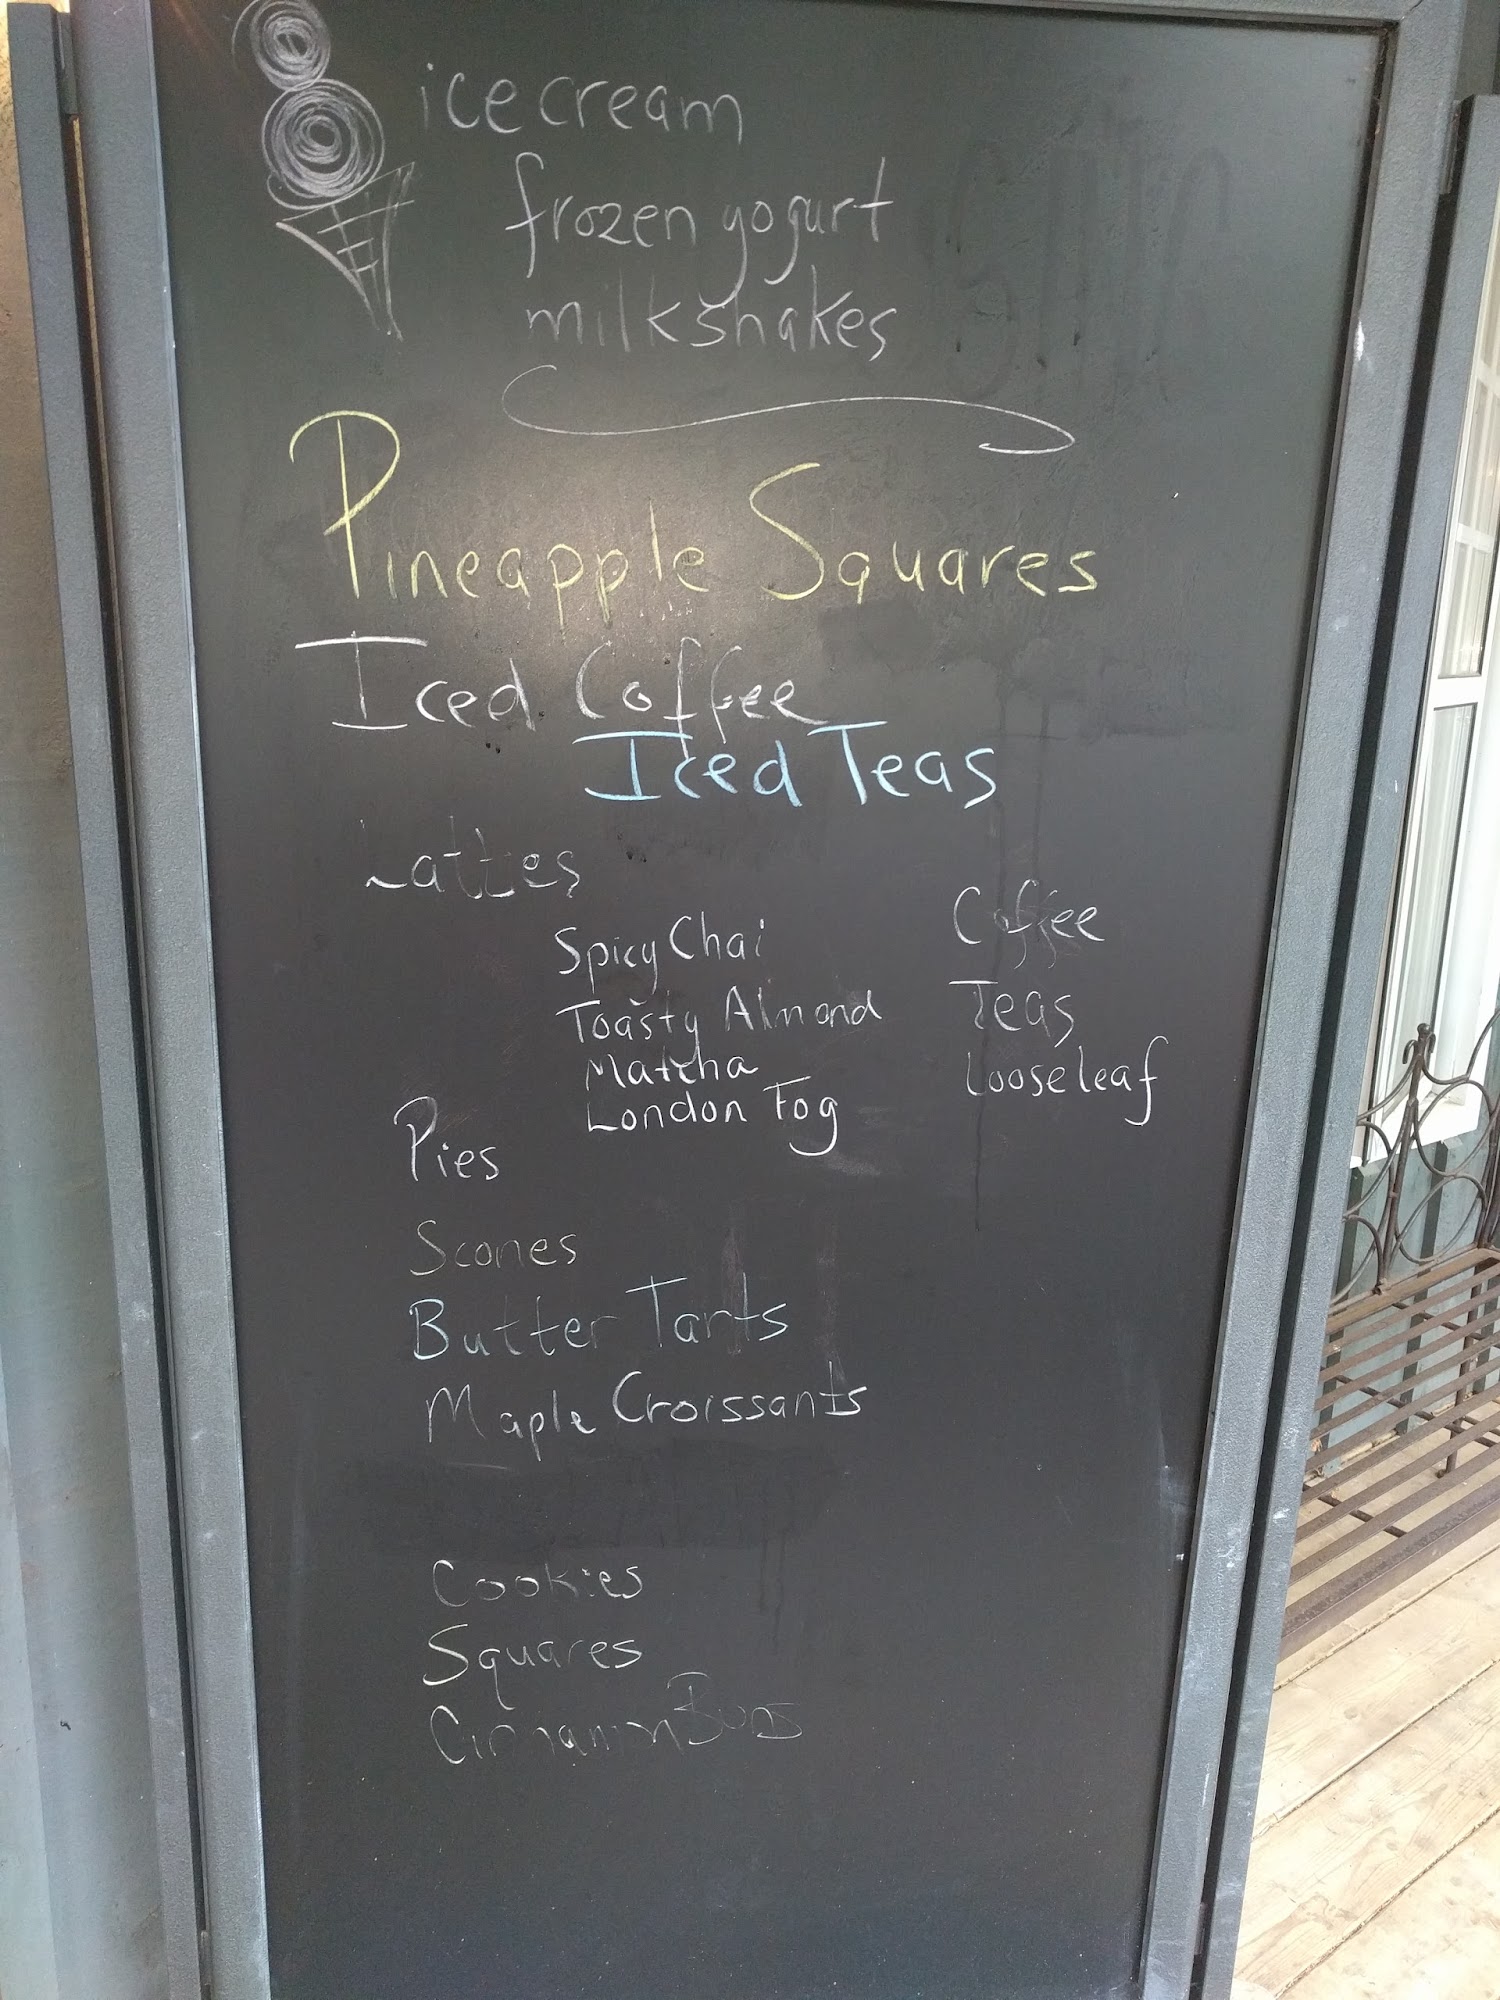 icecream
frozen yogurt
milkshakes
Pineapple Squares
Iced Coffee
Iced Teas
Lattes
Spicy Chai
Toasty Almond
Matcha
London Fog
Coffee
Teas
Looseleaf
Pies
Scones
Butter Tarts
Maple Croissants
Cookies
Squares
Cinnamon Buns